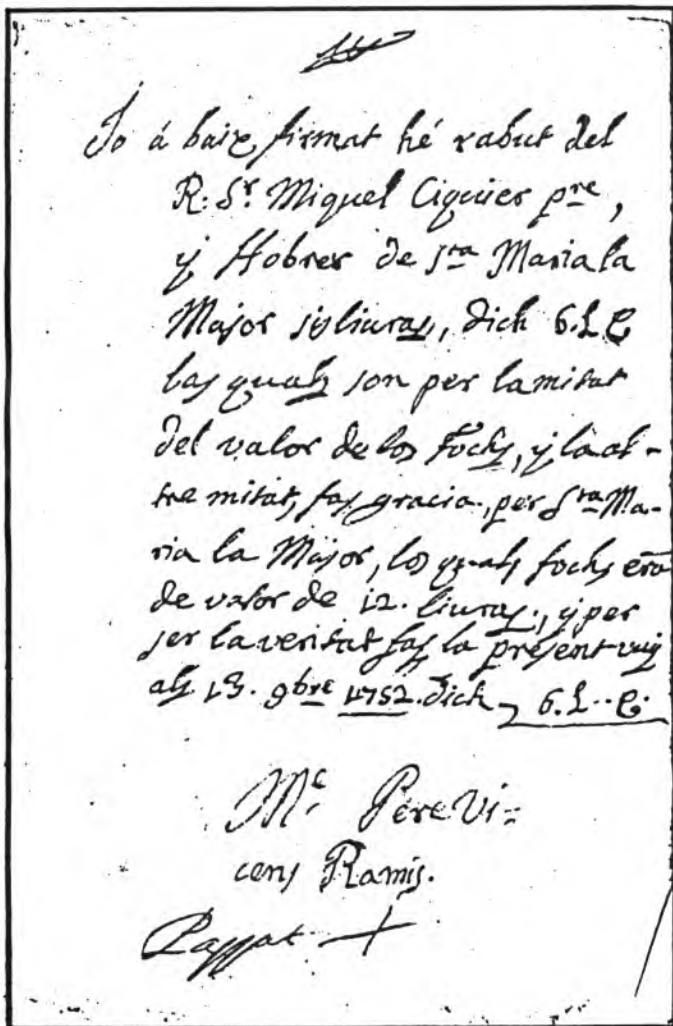 Jo á baix firmat hé rabut del
R. Sr. Miquel Ciquier pre,
y Hobrer de Sta Maria la
Major sis liuras, dich 6. L
las quals son per la mitat
del valor de los fochs, y la al-
tre mitat, fas gracia, per Sta Ma-
ria la Major, los quals fochs erā
de valor de 12. liuras., y per
ser la veritat fas la present vuy
als 13. 9bre 1752. dich 6. L
Me. Pere Vi-
cens Ramis.
Passat